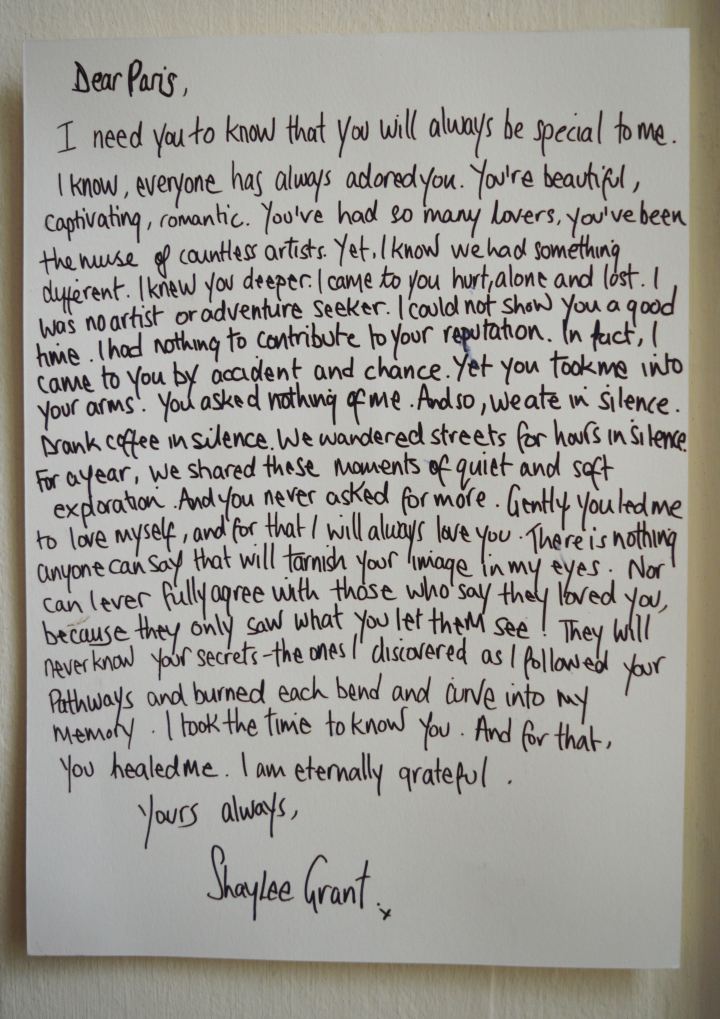 Dear Paris,
I need you to know that you will always be special to me.
I know, everyone has always adored you. You're beautiful,
captivating, romantic. You've had so many lovers, you've been
the muse of countless artists. Yet, I know we had something
different. I knew you deeper. I came to you hurt, alone and lost. I
was no artist or adventure seeker. I could not show you a good
time. I had nothing to contribute to your reputation. In fact, I
came to you by accident and chance. Yet you took me into
your arms. You asked nothing of me. And so, we ate in silence.
Drank coffee in silence. We wandered streets for hours in silence
For a year, we shared these moments of quiet and soft
exploration. And you never asked for more. Gently you led me
to love myself, and for that I will always love you. There is nothing
anyone can say that will tarnish your image in my eyes. Nor
can I ever fully agree with those who say they loved you,
because they only saw what you let them see! They will
never know your secrets - the ones I discovered as I followed your
pathways and burned each bend and curve into my
memory. I took the time to know you. And for that,
you healed me. I am eternally grateful.
Yours always,
Shaylee Grant. x